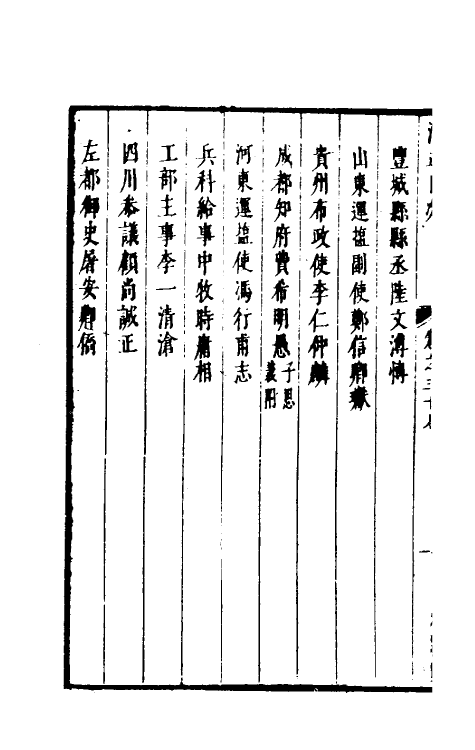 卷之三十八
豐城縣縣丞陸文溥愽
山東運鹽副使鄭信卿巚
貴州布政使李仁仲麟
成都知府費希明愚子思義附
河東運鹽使馮行甫志
兵科給事中牧時庸相
工部主事李一清滄
四川叅議顧尚誠正
左都御史屠安卿僑